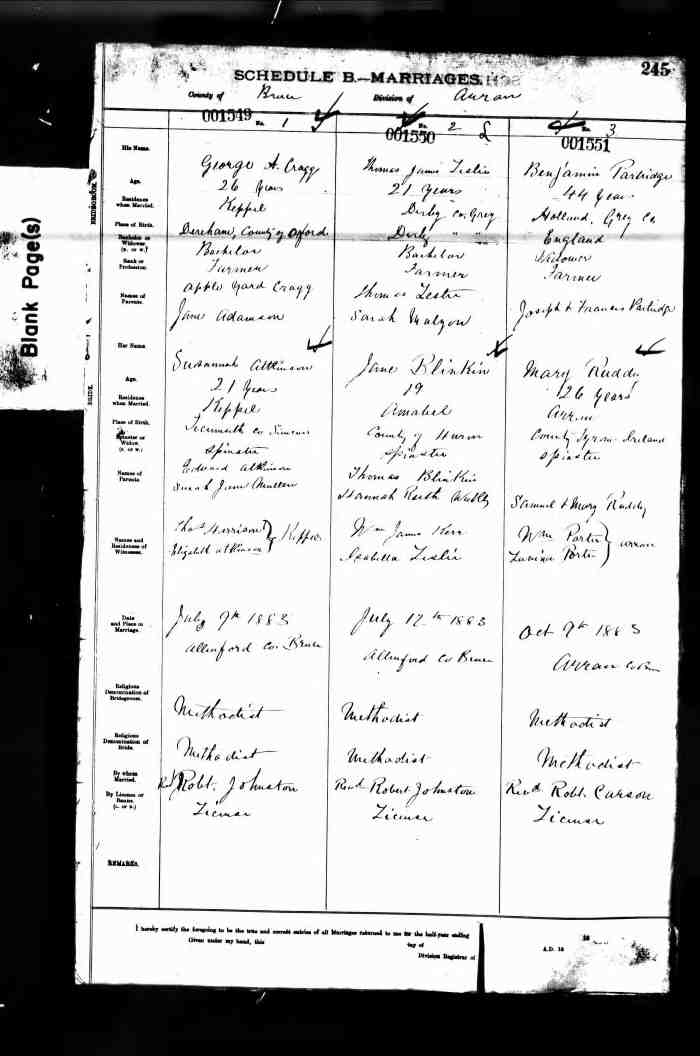 245
SCHEDULE B.—MARRIAGES.
County of Bruce Division of Arran
001549 No. 1
001550 No. 2
001551 No. 3
Blank Page(s)
BRIDEGROOM
His Name. George A. Cragg Thomas James Leslie Benjamin Partridge
Age. 26 Years 21 Years 44 Years
Residence when Married. Keppel Derby Co. Grey Holland, Grey Co
Place of Birth. Dereham, County of Oxford Derby " " England
Bachelor or Widower. (B. or W.) Bachelor Bachelor Widower
Rank or Profession. Farmer Farmer Farmer
Names of Parents. Apple Yard Cragg Thomas Leslie Joseph & Frances Partridge
Jane Adamson Sarah
BRIDE.
Her Name Susannah Atkinson Jane Blinkin Mary Ruddy
Age. 21 Years 19 26 Years
Residence when Married. Keppel Amabel Arran
Place of Birth. Tecumseth Co Simcoe County of Huron County Tyrone Ireland
Spinster or Widow. (S. or W.) Spinster Spinster Spinster
Names of Parents Edward Atkinson Thomas Blinkin Samuel & Mary Ruddy
Sarah Jane Hannah
Names and Residences of Witnesses. Thos Harrison Keppel Wm James Kerr Wm Porter Arran
Elizabeth Atkinson Isabella Leslie Porter
Date and Place of Marriage. July 9th 1883 July 12th 1883 Oct 9th 1883
Allenford Co. Bruce Allenford Co Bruce Arran Co
Religious Denomination of Bridegroom. Methodist Methodist Methodist
Religious Denomination of Bride. Methodist Methodist Methodist
By whom Married. Rev Robt. Johnston Revd Robert Johnston Revd Robt. Carson
By License or Banns. (L. or B.) License License License
REMARKS.
I hereby certify the foregoing to be the true and correct entries of all Marriages returned to me for the half-year ending 18
Given under my hand, this day of A.D. 18
Division Registrar of